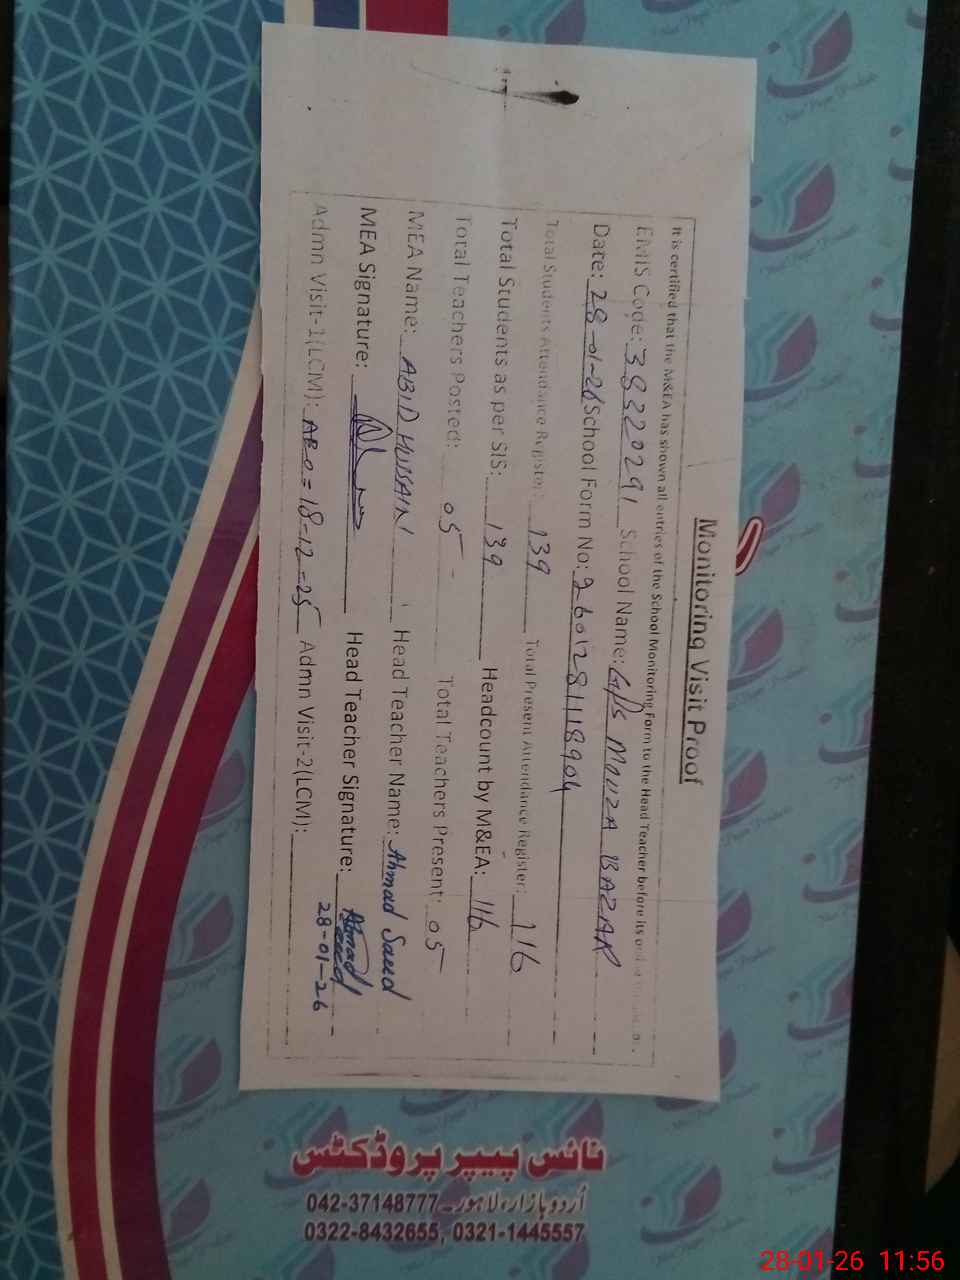 Monitoring Visit Proof
It is certified that the M&EA has shown all entries of the School Monitoring Form to the Head Teacher before its
EMIS Code: 38320291 School Name: G/PS MOUZA BAZAR
Date: 28-01-26 School Form No: 260128118904
Total Students Attendance Register: 139 Total Present Attendance Register: 116
Total Students as per SIS: 139 Headcount by M&EA: 116
Total Teachers Posted: 05 Total Teachers Present: 05
MEA Name: ABID HUSSAIN Head Teacher Name: Ahmad Saeed
MEA Signature: Head Teacher Signature: Ahmad Saeed
28-01-26
Admn Visit-1(LCM): AEO = 18-12-25 Admn Visit-2(LCM):
نائس پیپر پروڈکٹس
اُردو بازار، لاہور۔ 042-37148777
0322-8432655, 0321-1445557
28-01-26 11:56